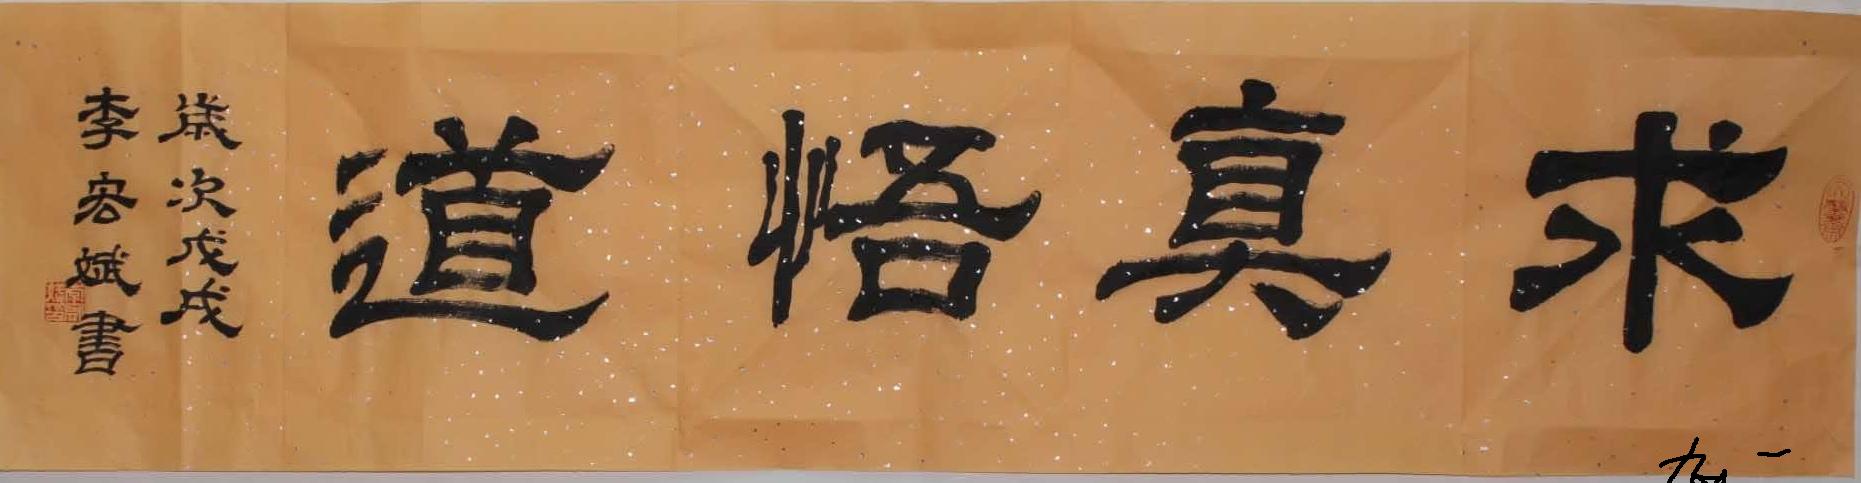 求真悟道
歲次戊戌
李宏斌書